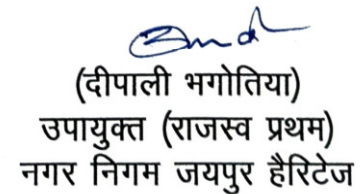 (दीपाली भगोतिया)
उपायुक्त (राजस्व प्रथम)
नगर निगम जयपुर हैरिटेज